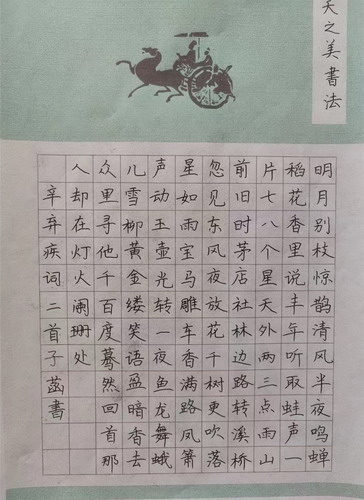 天之美書法
明月别枝惊鹊清风半夜鸣蝉
稻花香里说丰年听取蛙声一
片七八个星天外两三点雨山
前旧时茅店社林边路转溪桥
忽见东风夜放花千树更吹落
星如雨宝马雕车香满路凤箫
声动玉壶光转一夜鱼龙舞蛾
儿雪柳黄金缕笑语盈暗香去
众里寻他千百度蓦然回首那
人却在灯火阑珊处
辛弃疾词二首子菡書